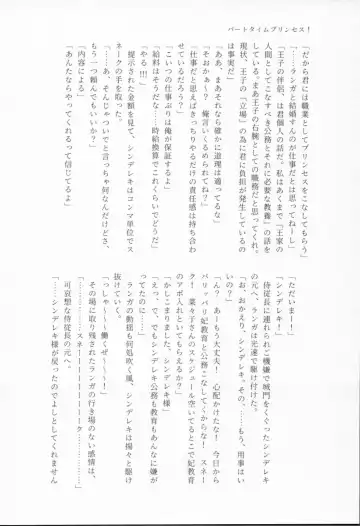 パートタイムプリンセス！
「だから君には職業としてプリンセスをこなしてもらう」
「……ランガと結婚すんのが仕事だとは思ってねーし」
「王子の伴侶、は君個人の話だ。私はあくまで『王家の
人間としてこなすべき公務とそれに必要な教養』の話を
している。まあ王子の右腕としての職務だと思ってくれ。
現状、王子の『立場』の為に君に負担が発生しているの
は事実だ」
「あ、まあそれなら確かに道理は通ってるな」
「そおかぁ～？　俺言いくるめられてね？」
「仕事だと思えばきっちりやるだけの責任感は持ち合わ
せているだろう？」
「こいつの仕事ぶりは俺が保証するよ」
「給料はそうだな……時給換算でこれくらいでどうだ」
「やる!!!」
　提示された金額を見て、シンデレキはコンマ単位でス
ネークの手を取った。
「……あ、そんじゃついでと言っちゃ何なんだけどさ、
もう一つ頼んでもいいか？」
「内容による」
「あんたならやってくれるって信じてるよ」
「ただいまー！」
「シンデレキ！」
　侍従長に連れられご機嫌で城門をくぐったシンデレキ
の元へ、ランガは光速で駆け付けた。
「お、おかえり、シンデレキ。その、……もう、用事はい
いの？」
「へ？　あーもう大丈夫！　心配かけたな！　今日から
バリッバリ妃教育と公務こなしてくからな！　スネー
ク！　菜々子さんのスケジュール空いてるとこで妃教育
のアポ入れといてもらえるか？」
「かしこまりました、シンデレキ様」
「えっ、で、でもシンデレキ公務も妃教育もあんなに嫌が
ってたのに……」
　ランガの動揺も何処吹く風、シンデレキは揚々と駆け
抜けていく。
「っしゃ～～～働くぜ～～～！」
　その場に取り残されたランガの行き場のない感情は、
可哀想な侍従長の元へ。
「……スネーーーーーーーーク」
「………………シンデレキ様が戻ったのでよしとしてくれません